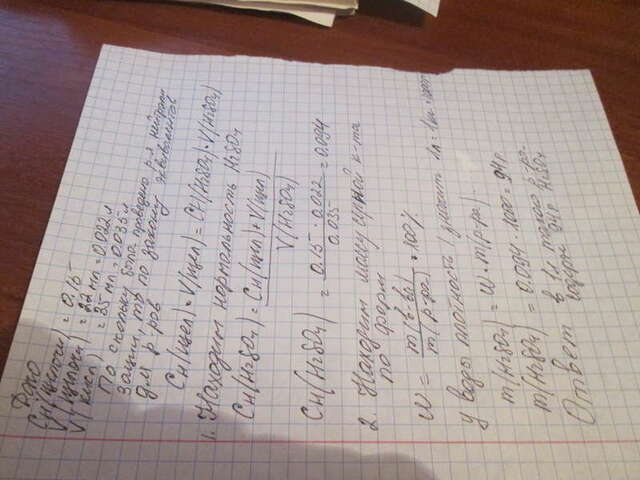 Дано
CH(щелочи) = 0.15
V(щелочи) = 22 мл = 0.022 л
V(кисл) = 35 мл = 0.035 л
По скольку была проведена р-я нейтрали
зации, то по закону эквивалентов
для р-ров
CH(щел) • V(щел) = CH(H2SO4) • V(H2SO4)
1. Находим нормальность H2SO4
CH(H2SO4) = CH(щел) • V(щел) / V(H2SO4)
CH(H2SO4) = 0.15 • 0.022 / 0.035 = 0.094
2. Находим массу серной к-ты
по форм
W = m(в-ва) / m(р-ра) • 100%
у воды плотность 1 значит 1л =
m(H2SO4) = W • m(р-ра)
m(H2SO4) = 0.094 • 1000 = 94г
Ответ в 1л такого р-ра
94г H2SO4